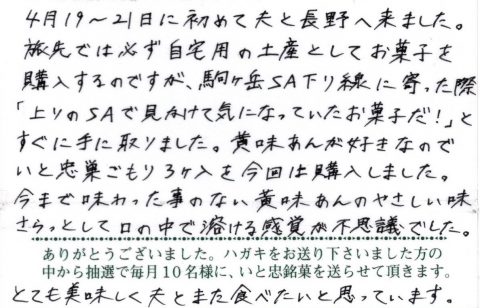 4月19～21日に初めて夫と長野へ来ました。
旅先では必ず自宅用の土産としてお菓子を
購入するのですが、駒ヶ岳SA下り線に寄った際
「上りのSAで見かけて気になっていたお菓子だ！」と
すぐに手に取りました。黄味あんが好きなので
いと忠巣ごもり3ヶ入を今回は購入しました。
今まで味わった事のない黄味あんのやさしい味
さらっとして口の中で溶ける感覚が不思議でした。
ありがとうございました。ハガキをお送り下さいました方の
中から抽選で毎月10名様に、いと忠銘菓を送らせて頂きます。
とても美味しく夫とまた食べたいと思っています。